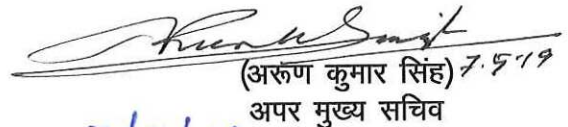 (अरूण कुमार सिंह) 7.5.19
अपर मुख्य सचिव